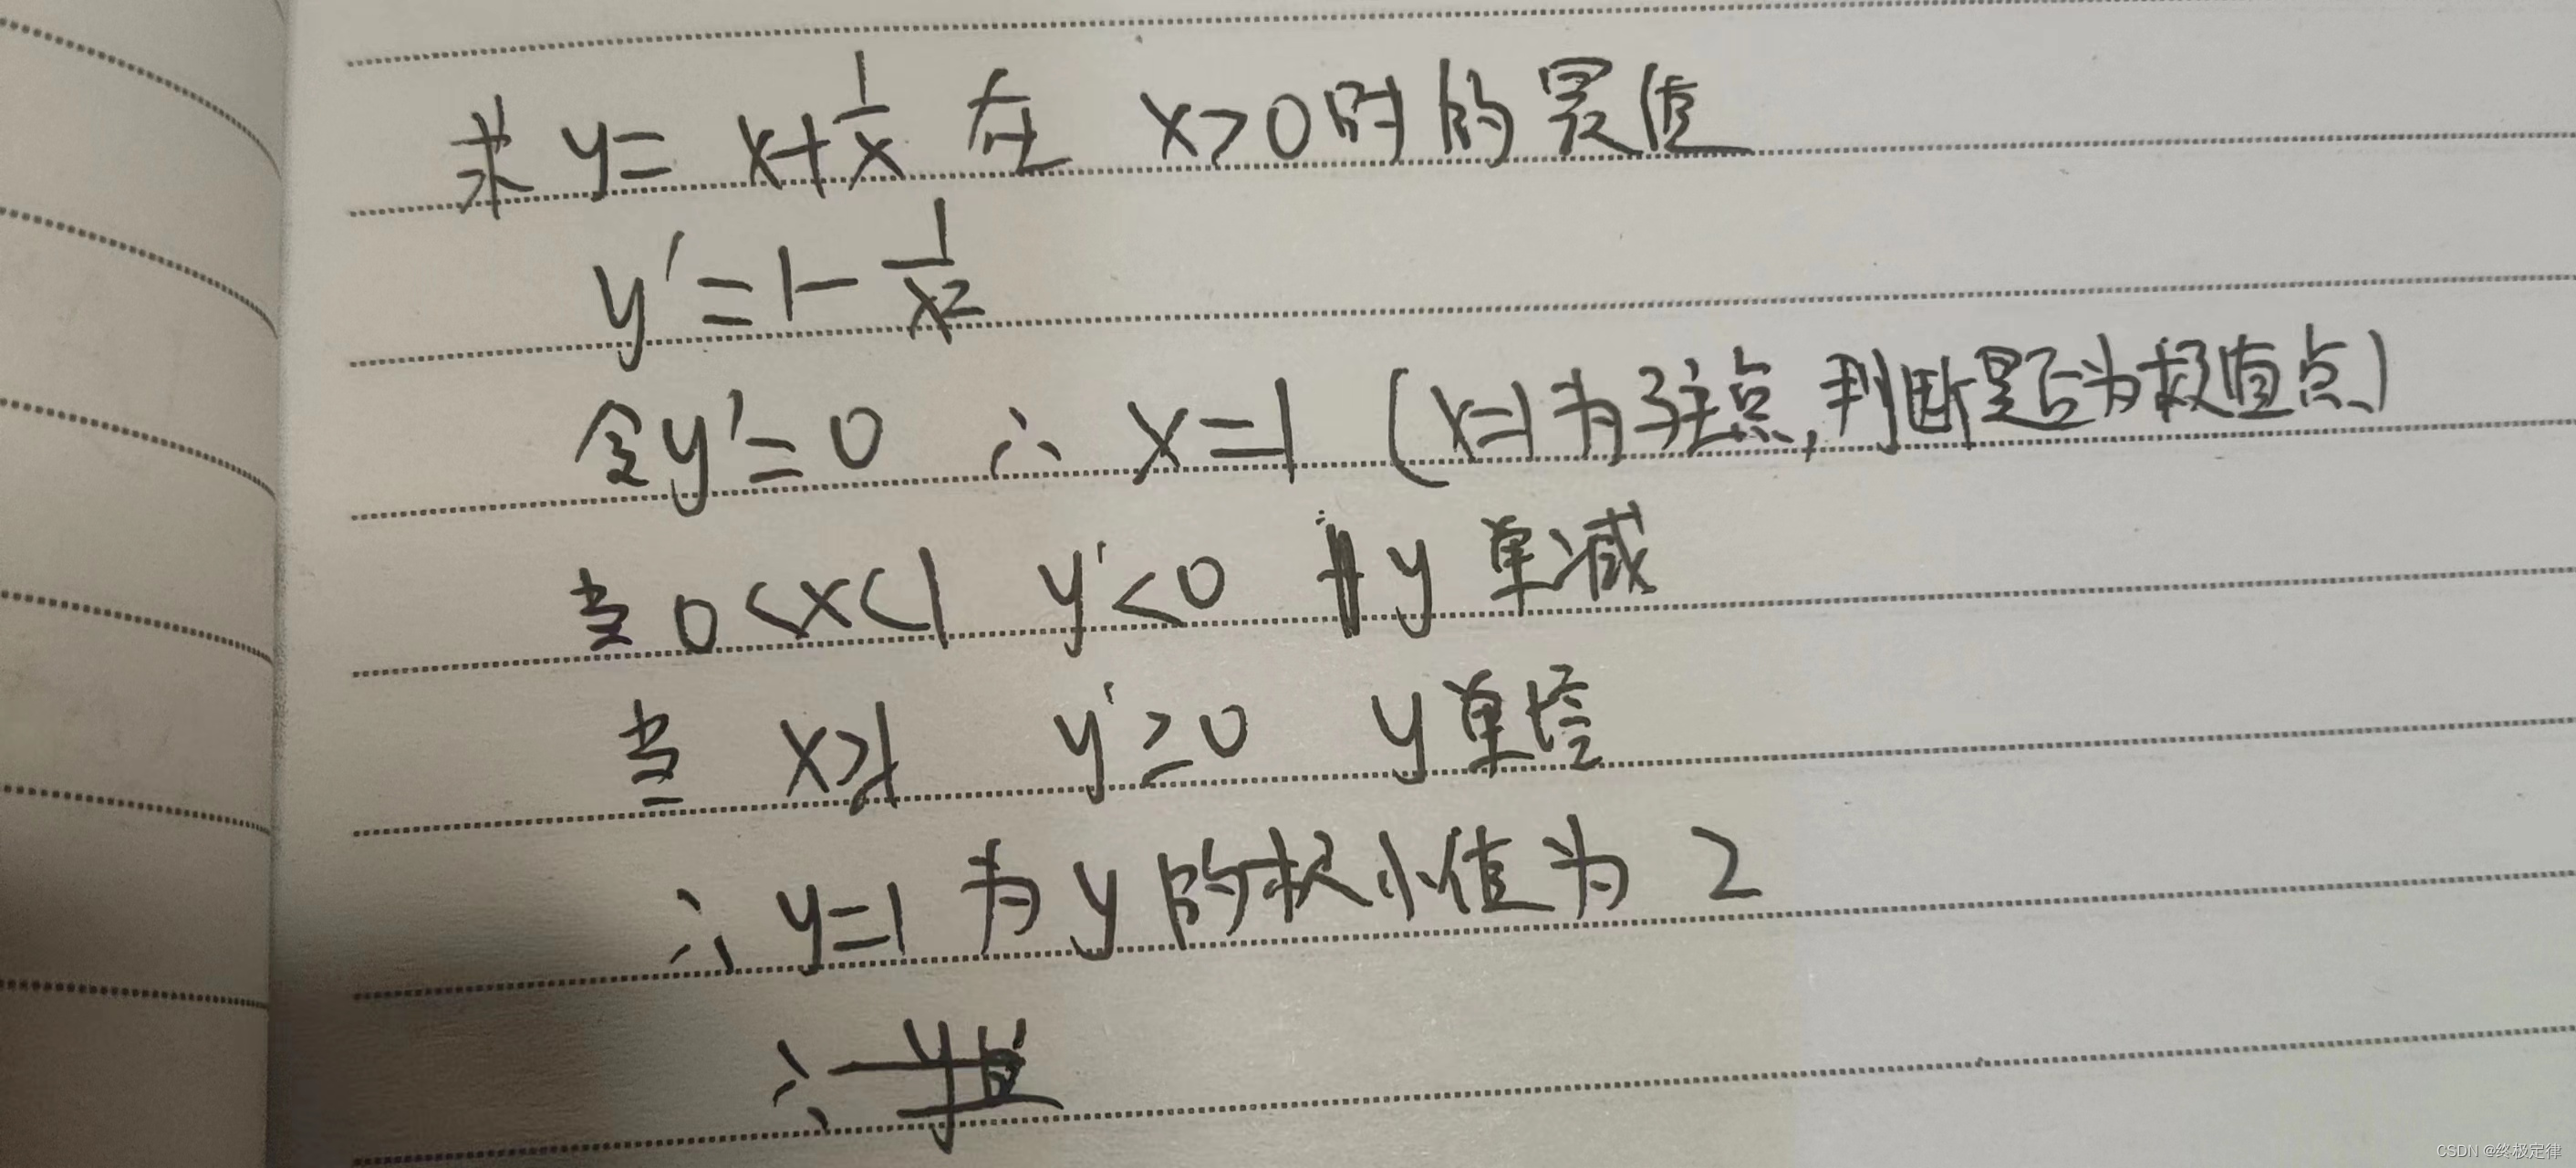 求 y = x+1/x 在 x>0时的最值
y' = 1 - 1/x²
令y'=0 ∴ x=1 (x=1为驻点,判断是否为极值点)
当 0<x<1 y'<0 y 单减
当 x≥1 y'≥0 y单增
∴ y=1 为 y 的极小值为 2
∴ y
CSDN @终极定律